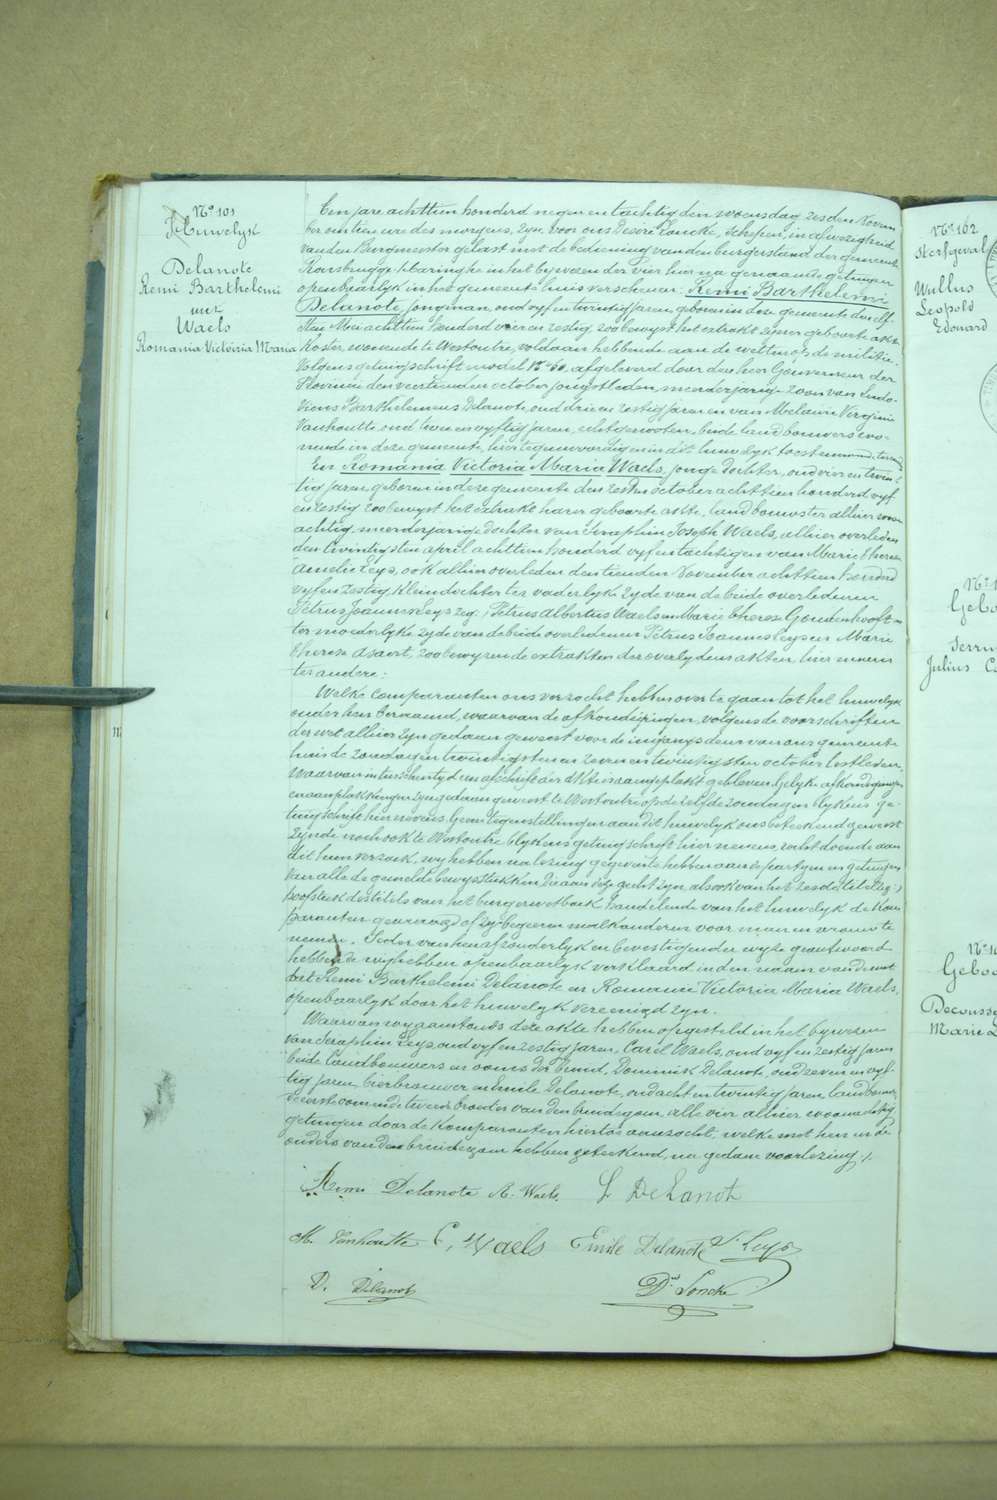 Nº 101
Huwelyk
Delanote
Remi Barthelemi
met
Waels
Romania Victoria Maria
Ten jare achttien honderd negen en tachtig den woensdag zesden Novem
ber om tien ure des morgens, zyn, voor ons Desiré Loncke, schepen, in afwezigheid
van den Borgmeester gelast met de bediening van den burgerstand der gemeente
Rousbrugge-Haringhe in het bywezen der vier hier na genaamde getuigen
openbaarlyk in het gemeente huis verschenen: Remi Barthelemi
Delanote, jongman, oud vyf en twintig jaren, geboren in deze gemeente den elf
sten Mei achttien honderd vier en zestig, zoo bewyst het extrakt zyner geboorte akte
koster, wonende te Westoutre, voldaan hebbende aan de wetten op de militie
volgens getuigschrift model Nº 50, afgeleverd door den heer Gouverneur der
Provincie den veertienden october jongstleden, meerderjarige zoon van Ludo-
vicus Barthelemeus Delanote, oud drie en zestig jaren en van Melanie Virginie
Vanhoutte, oud twee en vyftig jaren, echtgenooten, beide landbouwers wo-
nende in deze gemeente, hier tegenwoordig en in dit huwelyk toestemmende, ter eener
En Romania Victoria Maria Waels, jonge dochter, oud vier en twin-
tig jaren geboren in deze gemeente den zesden october achttien honderd vyf
en zestig zoo bewyst het extrakt harer geboorte akte, landbouwster alhier woon
achtig, meerderjarige dochter van Seraphin Joseph Waels, alhier overleden
den twintigsten april achttien honderd vyf en tachtig en van Marie Therese
Amelie Leys, ook alhier overleden den tienden November achttien honderd
vyf en zestig kleindochter ter vaderlyke zyde van de beide overledenen
Petrus Albertus Waels en Marie Therese Goudenhooft en
ter moederlyke zyde van de beide overledenen Petrus Joannes Leys en Marie
Therese Asaert, zoo bewyzen de extrakten der overlydens akten hier nevens
ter andere:
Welke comparanten ons verzocht hebben over te gaan tot het huwelyk
onder hen beraamd, waarvan de afkondigingen, volgens de voorschriften
der wet alhier zyn gedaan geweest voor de ingangsdeur van ons gemeente
huis de zondagen twintigsten en zeven en twintigsten october lestleden,
waarvan intusschentyd een afschrift der akte is aangeplakt gebleven Gelyke afkondigingen
en aanplakkingen zyn gedaan geweest te Westoutre op de zelfde zondagen blykens ge-
tuigschrift hier nevens. Geen tegenstellingen aan dit huwelyk ons beteekend geweest
zynde noch ook te Westoutre blykens getuigschrift hier nevens, recht doende aan
dit hun verzoek, wy hebben na lezing gegeven te hebben aan de partyen en getuigen
van alle de gemelde bewysstukken die aan deze gehecht zyn, alsook van het zesde
hoofdstuk des titels van het burgerwetboek handelende van het huwelyk de kom
paranten gevraagd of zy begeeren malkanderen voor man en vrouw te
nemen. Ieder van hen afzonderlyk en bevestigender wyze geantwoord
hebbende wy hebben openbaarlyk verklaard in den naam van de wet
dat Remi Barthelemi Delanote en Romanie Victoria Maria Waels
openbaarlyk door het huwelyk vereenigd zyn.
Waarvan wy aanstonds deze akte hebben opgesteld in het bywezen
van Seraphin Leys, oud vyf en zestig jaren, Carel Waels, oud vyf en zestig jaren
beide landbouwers en ooms der bruid, Dominik Delanote, oud zeven en vyf-
tig jaren, bierbrouwer en Emile Delanote, oud acht en twintig jaren, landbouwer
de eerste oom en de tweede broeder van den bruidegom, alle vier alhier woonachtig
getuigen door de komparanten hiertoe aanzocht, welke met hen en de
ouders van den bruidegom hebben geteekend, na gedane voorlezing ./.
Remi Delanote R. Waels L Delanote
M. Vanhoutte C. Waels Emile Delanote S. Leys
D. Delanote Dé Loncke
Nº 102
Sterfgeval
Wullus
Leopold
Edouard
Julius
Marie